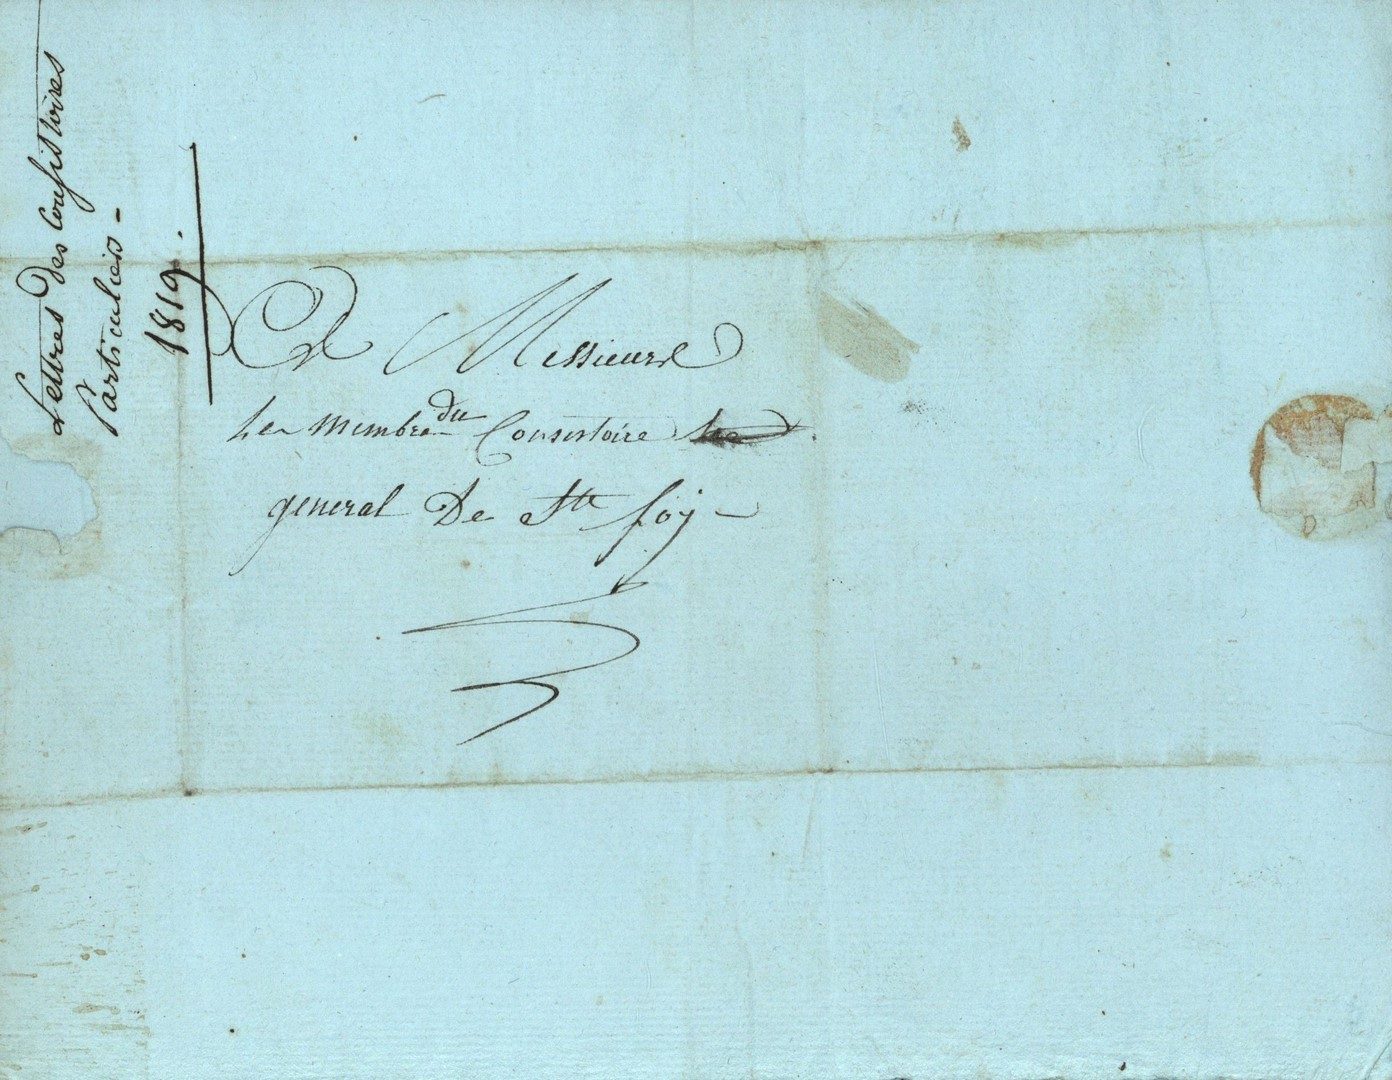 Lettres des Consistoires
Particuliers -
1819.
A Messieurs
Les Membres du Consistoire
general De Ste foy -